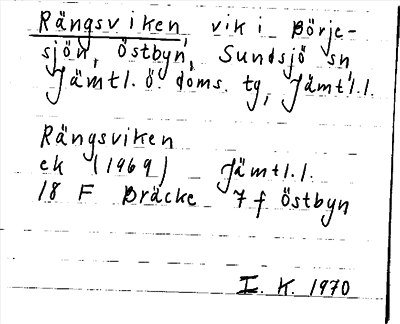 Rängsviken, vik i Börje-
sjön, Östbyn, Sundsjö sn,
Jämtl. ö. doms. tg, Jämtl.l.
Rängsviken
ek (1969) Jämtl.l.
18 F Bräcke 7 f Östbyn
I. K. 1970